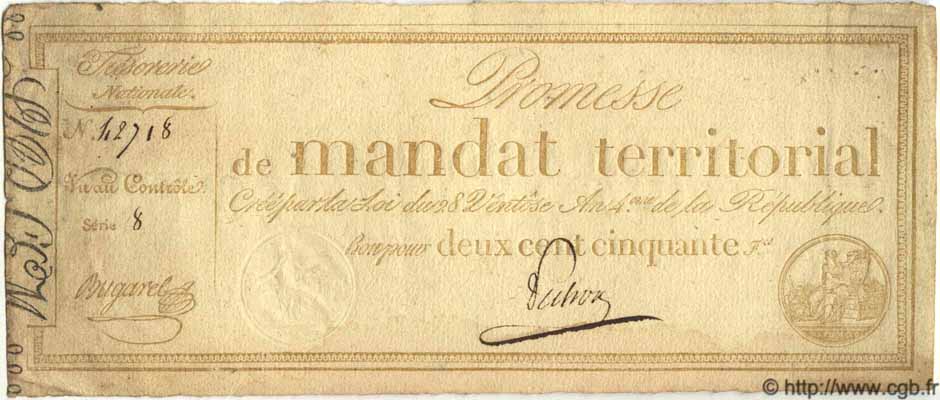 Trésorerie
Nationale.
N. 42718
Vu au Contrôle
Série 8
Bugarel
Promesse
de mandat territorial
Créé par la Loi du 28 Ventôse An 4.eme de la République.
Bon pour deux cent cinquante F.cs
© http://www.cgb.fr